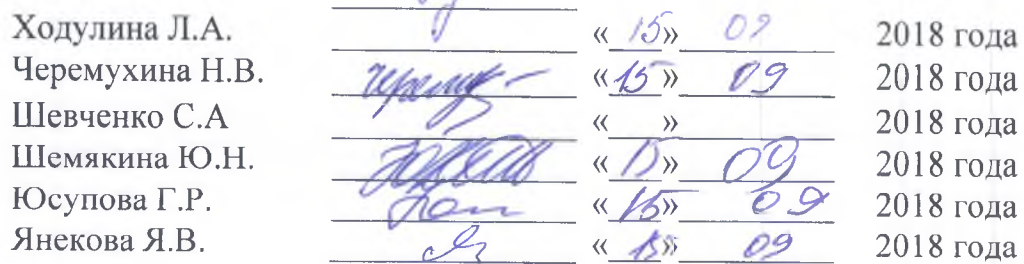 Ходулина Л.А. « 15» 09 2018 года
Черемухина Н.В. Черемух «15» 09 2018 года
Шевченко С.А « » 2018 года
Шемякина Ю.Н. «15» 09 2018 года
Юсупова Г.Р. «15» 09 2018 года
Янекова Я.В. «15» 09 2018 года